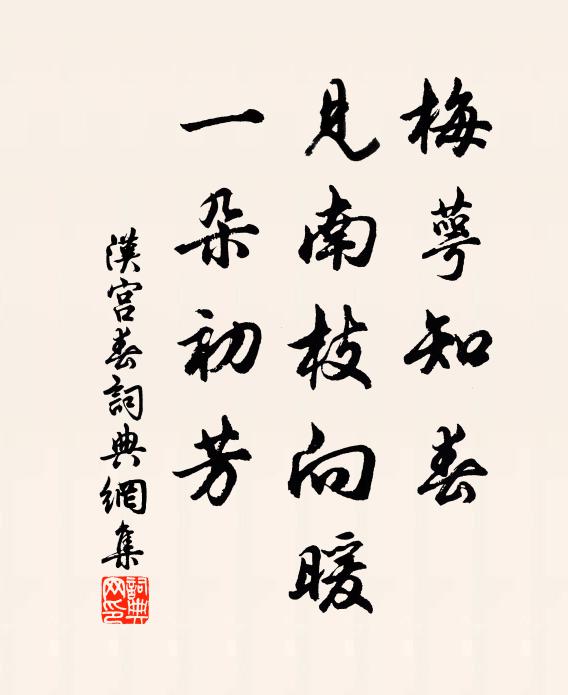 梅萼知春
見南枝向暖
一朵初芳
漢宮春詞典網集
詞典
网印